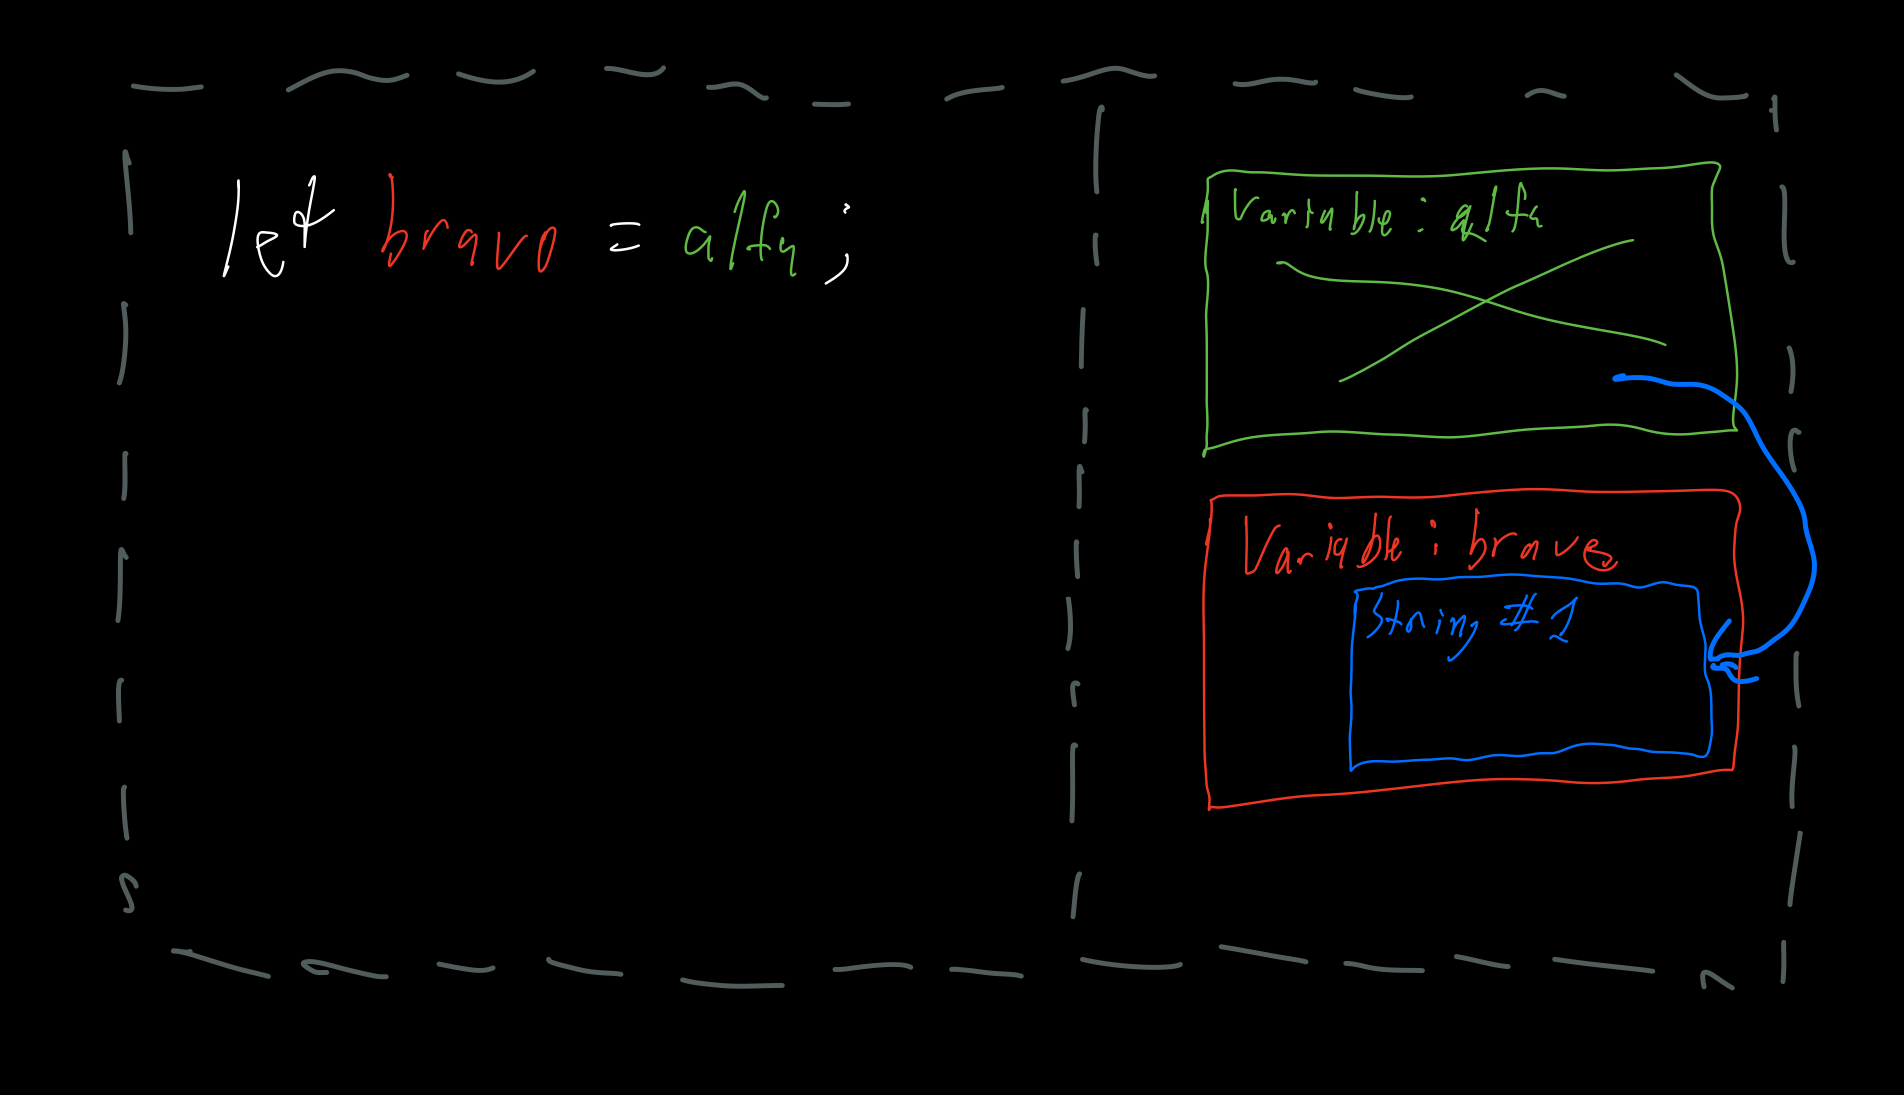 let bravo = alfa;
Variable: alfa
Variable: bravo
String #1